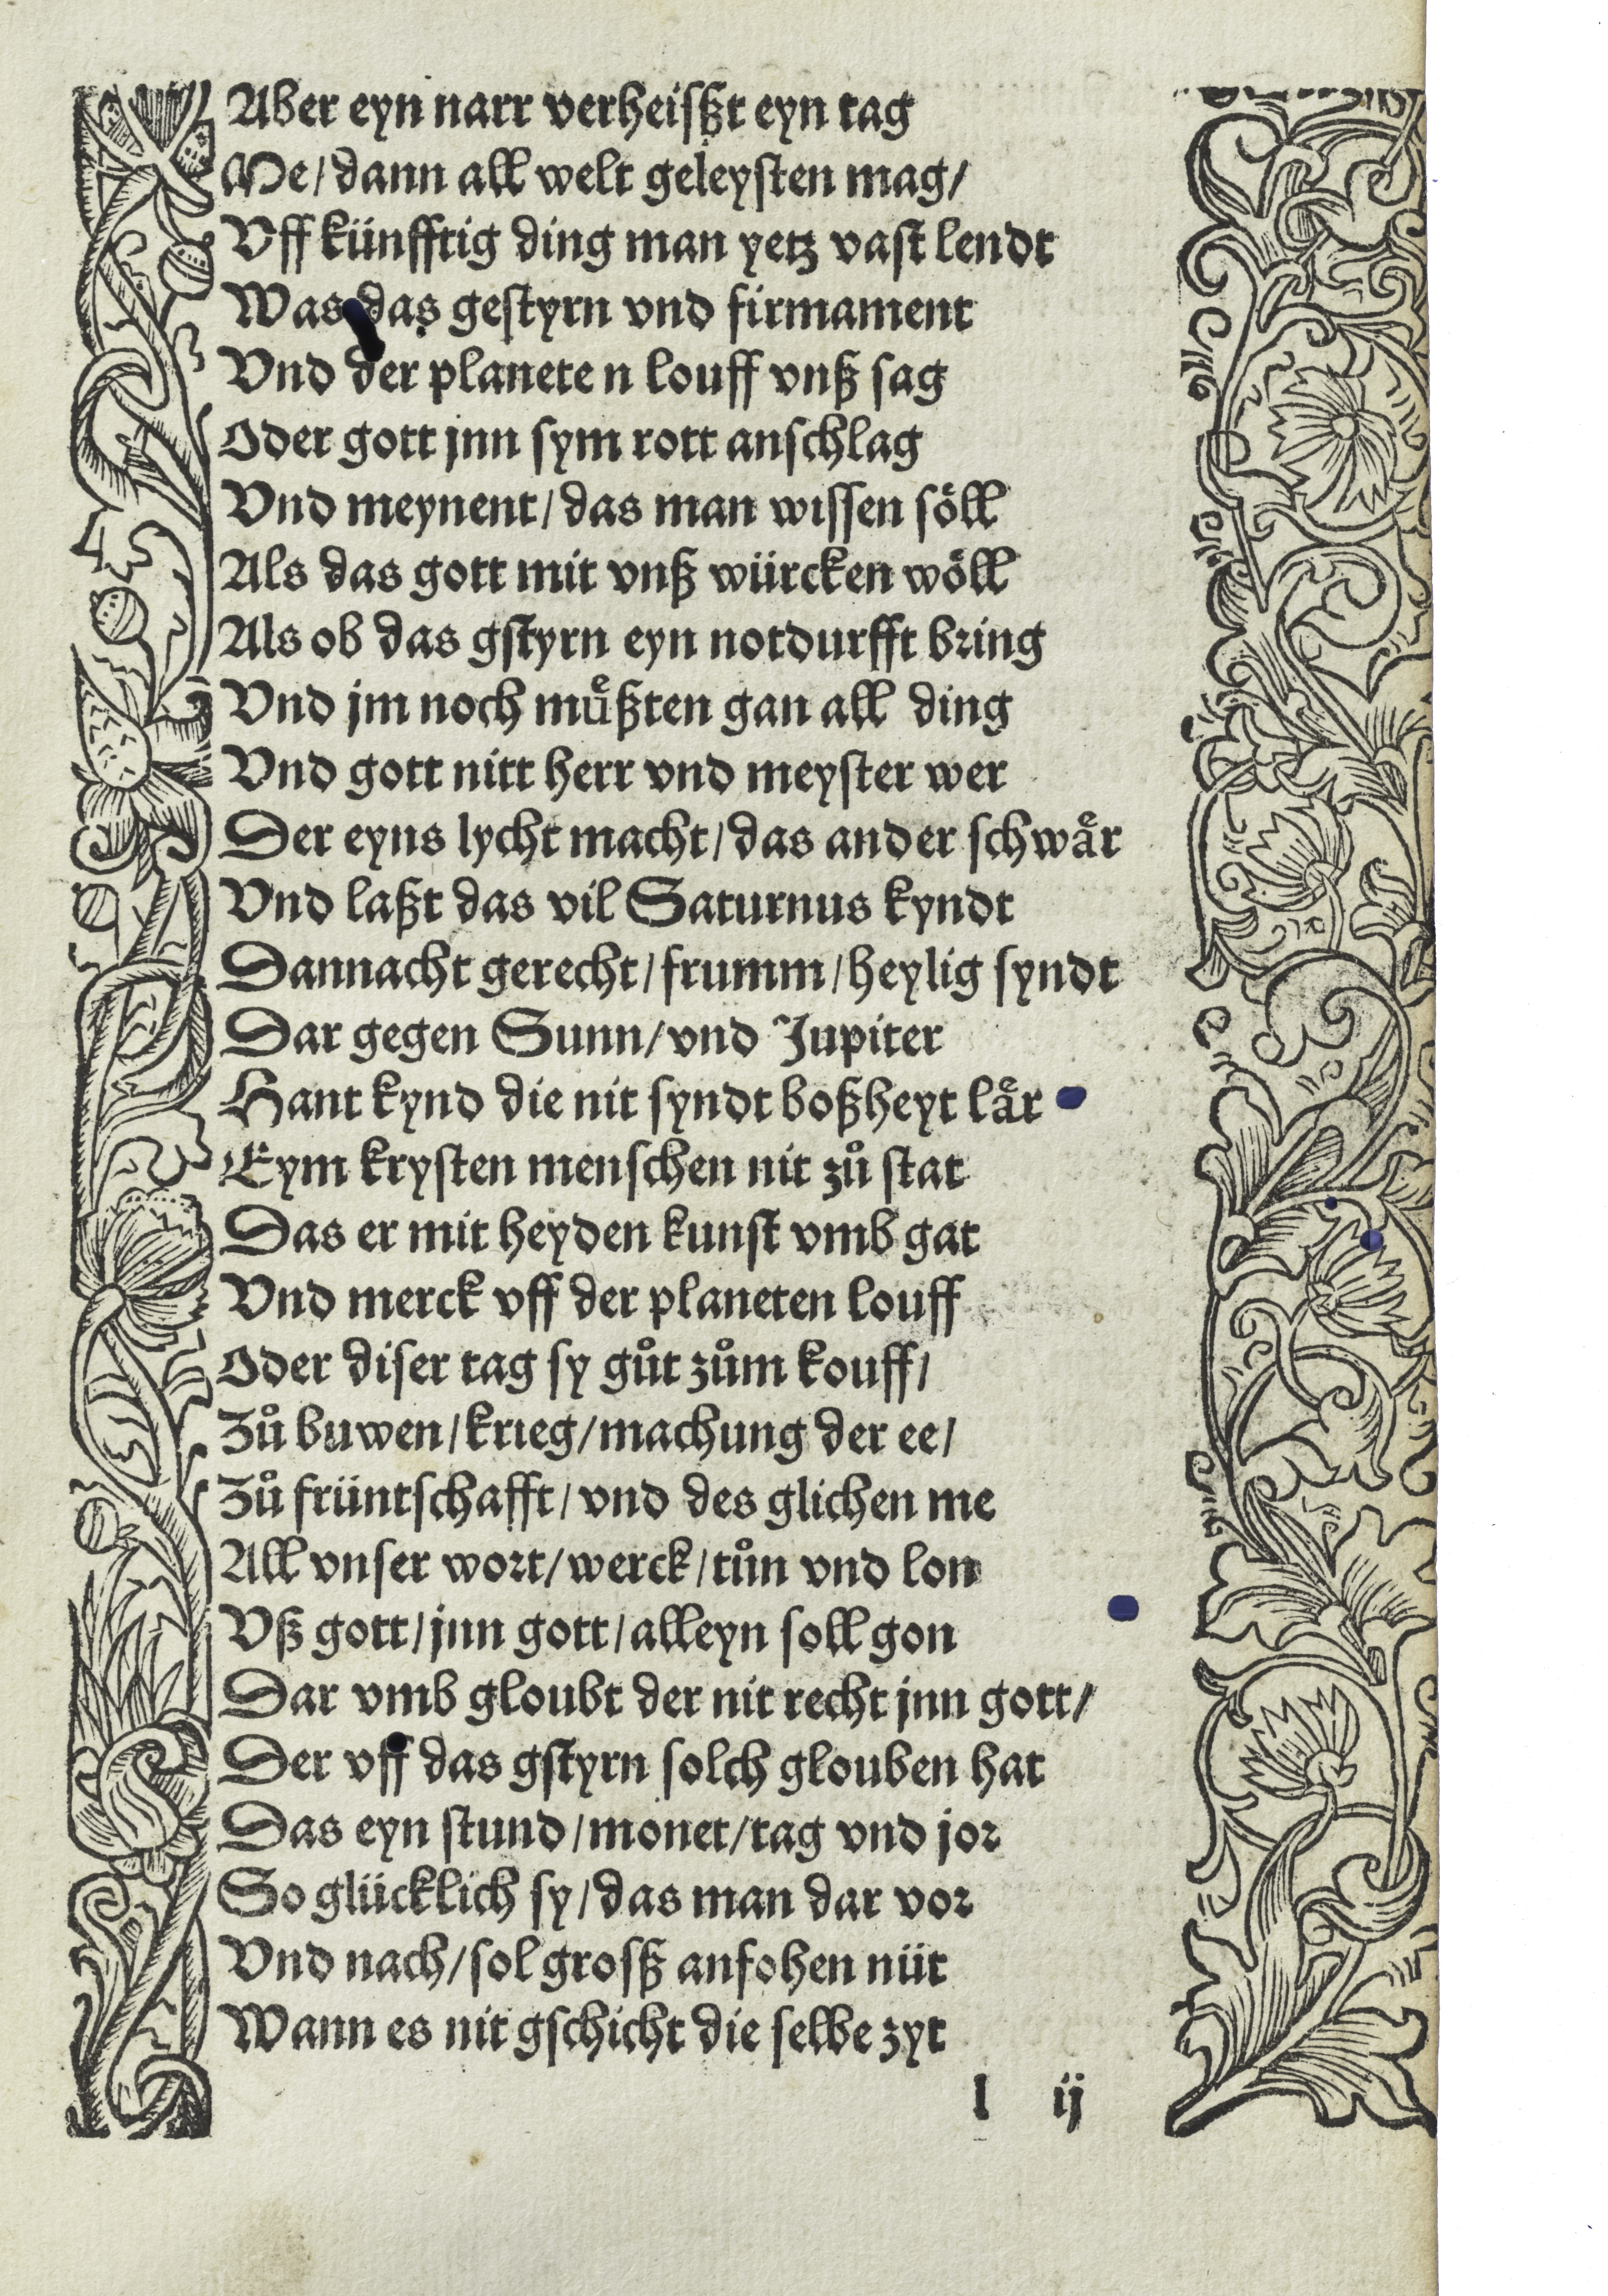 Aber eyn narr verheißßt eyn tag
Me / dann all welt geleysten mag /
Vff künfftig ding man yetz vast lendt
Was das gestyrn vnd firmament
Vnd der planete n louff vnß sag
Oder gott jnn sym rott anschlag
Vnd meynent / das man wissen söll
Als das gott mit vnß würcken wöll
Als ob das gstyrn eyn notdurfft bring
Vnd jm noch muͤßten gan all ding
Vnd gott nitt herr vnd meyster wer
Der eyns lycht macht / das ander schwaͤr
Vnd laßt das vil Saturnus kyndt
Dannacht gerecht / frumm / heylig syndt
Dar gegen Sunn / vnd Jupiter
Hant kynd die nit syndt boßheyt laͤr
Eym krysten menschen nit zuͦ stat
Das er mit heyden kunst vmb gat
Vnd merck vff der planeten louff
Oder diser tag sy guͦt zuͦm kouff /
Zuͦ buwen / krieg / machung der ee /
Zuͦ früntschafft / vnd des glichen me
All vnser wort / werck / tuͦn vnd lon
Vß gott / jnn gott / alleyn soll gon
Dar vmb gloubt der nit recht jnn gott /
Der vff das gstyrn solch glouben hat
Das eyn stund / monet / tag vnd jor
So glücklich sy / das man dar vor
Vnd nach / sol grosß anfohen nüt
Wann es nit gschicht die selbe zyt
l ij